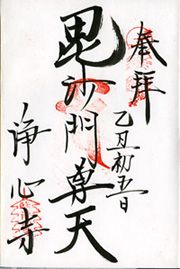 奉拝
乙丑初五日
毘沙門尊天
浄心寺